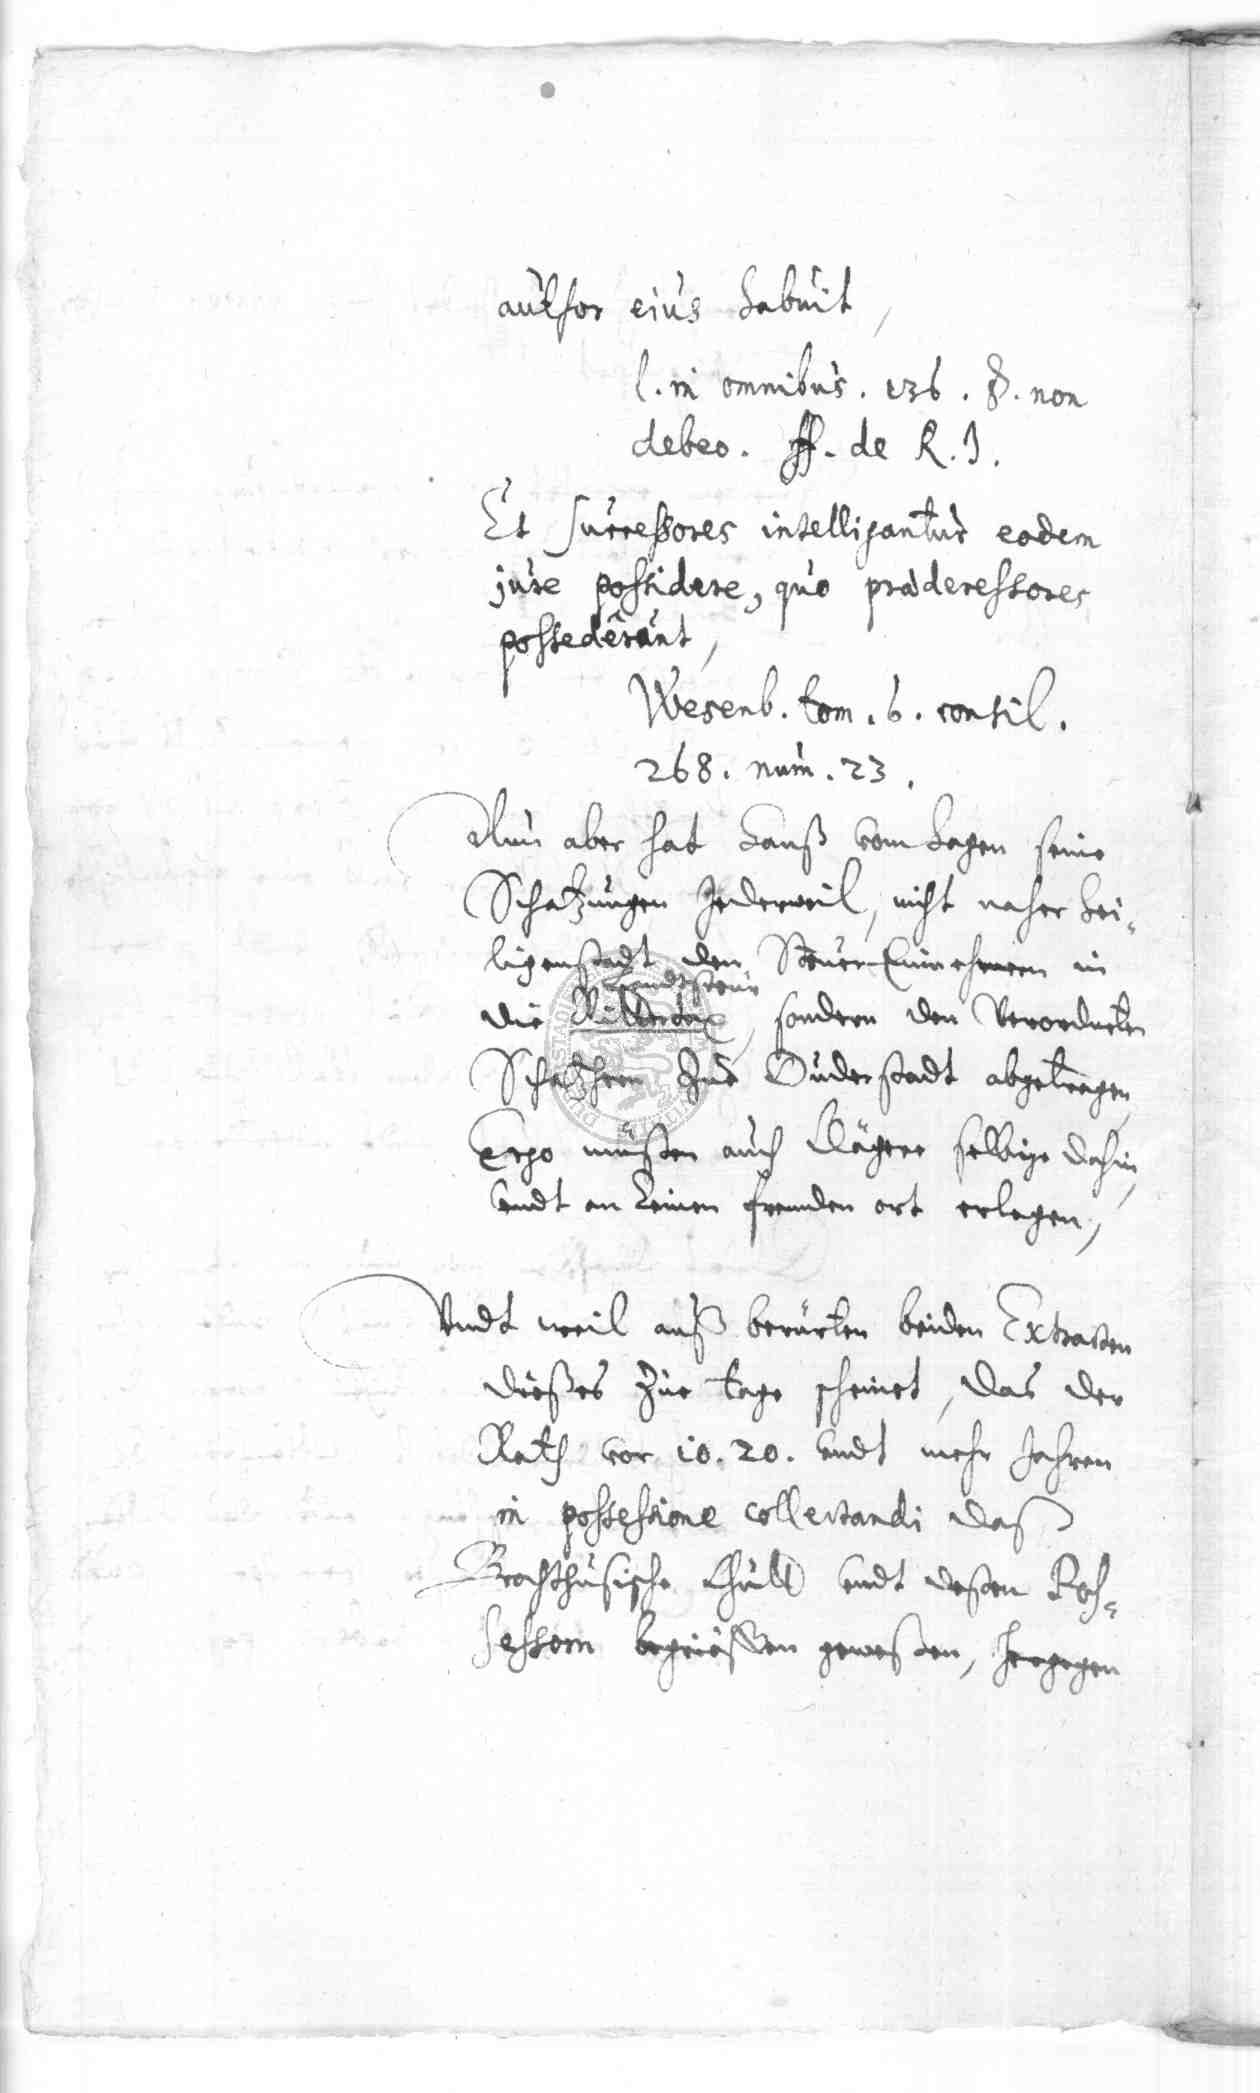 author eius habuit,
l. in omnibus. 136. §. non
debeo. ff. de R. J.
Et successores intelligantur eodem
jure possidere, quo praedecessores
possederunt,
Wesenb. tom. 6. consil.
268. num. 23.
Nun aber hat Hanß vom Hagen seine
Schatzungen Jederweil, nicht naher Hei-
ligenstadt den Steuer Einnehmern in
Landtsteur
die Ritterdex, sondern den Verordneten
Schatzhern zue Duderstadt abgetragen,
Ergo müßen auch Klägere selbige dahin,
undt an keinen frembden ort erlegen,
Undt weil auß berürten beiden Extracten
dießes zue tage scheinet, das der
Rath vor 10. 20. undt mehr Jahren
in possessione collectandi daß
Brochthusische guth undt deßen Pos-
sessorn begrieffen geweßen, hergegen